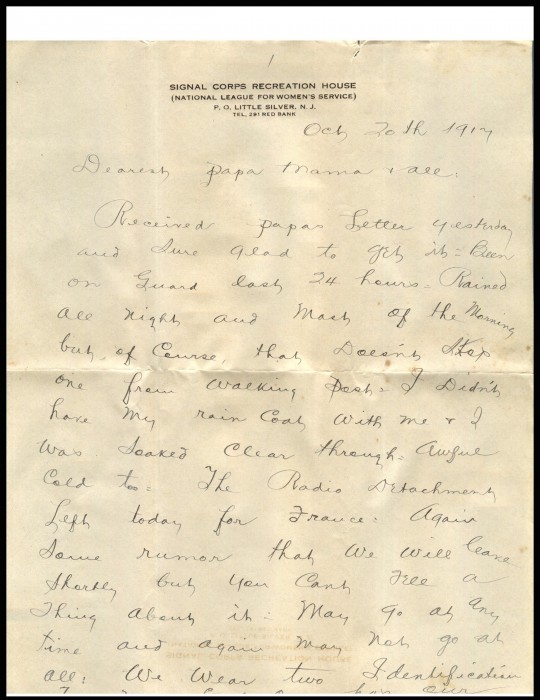 SIGNAL CORPS RECREATION HOUSE
(NATIONAL LEAGUE FOR WOMEN'S SERVICE)
P. O. LITTLE SILVER, N. J.
TEL. 291 RED BANK
Oct 20th 1917
Dearest papa Mama & all:
Received papas Letter yesterday
and Sure glad to get it = Been
on Guard last 24 hours = Rained
all night and Most of the Morning
but, of Course, that Doesn't Stop
one from walking post = I Didn't
have My rain Coat With me & I
Was Soaked Clear through = Awful
Cold to = The Radio Detachment
Left today for France = Again
Some rumor that We will leave
Shortly but you Cant Tell a
Thing about it = May go at any
time and again may not go at
all = We Wear two Identification